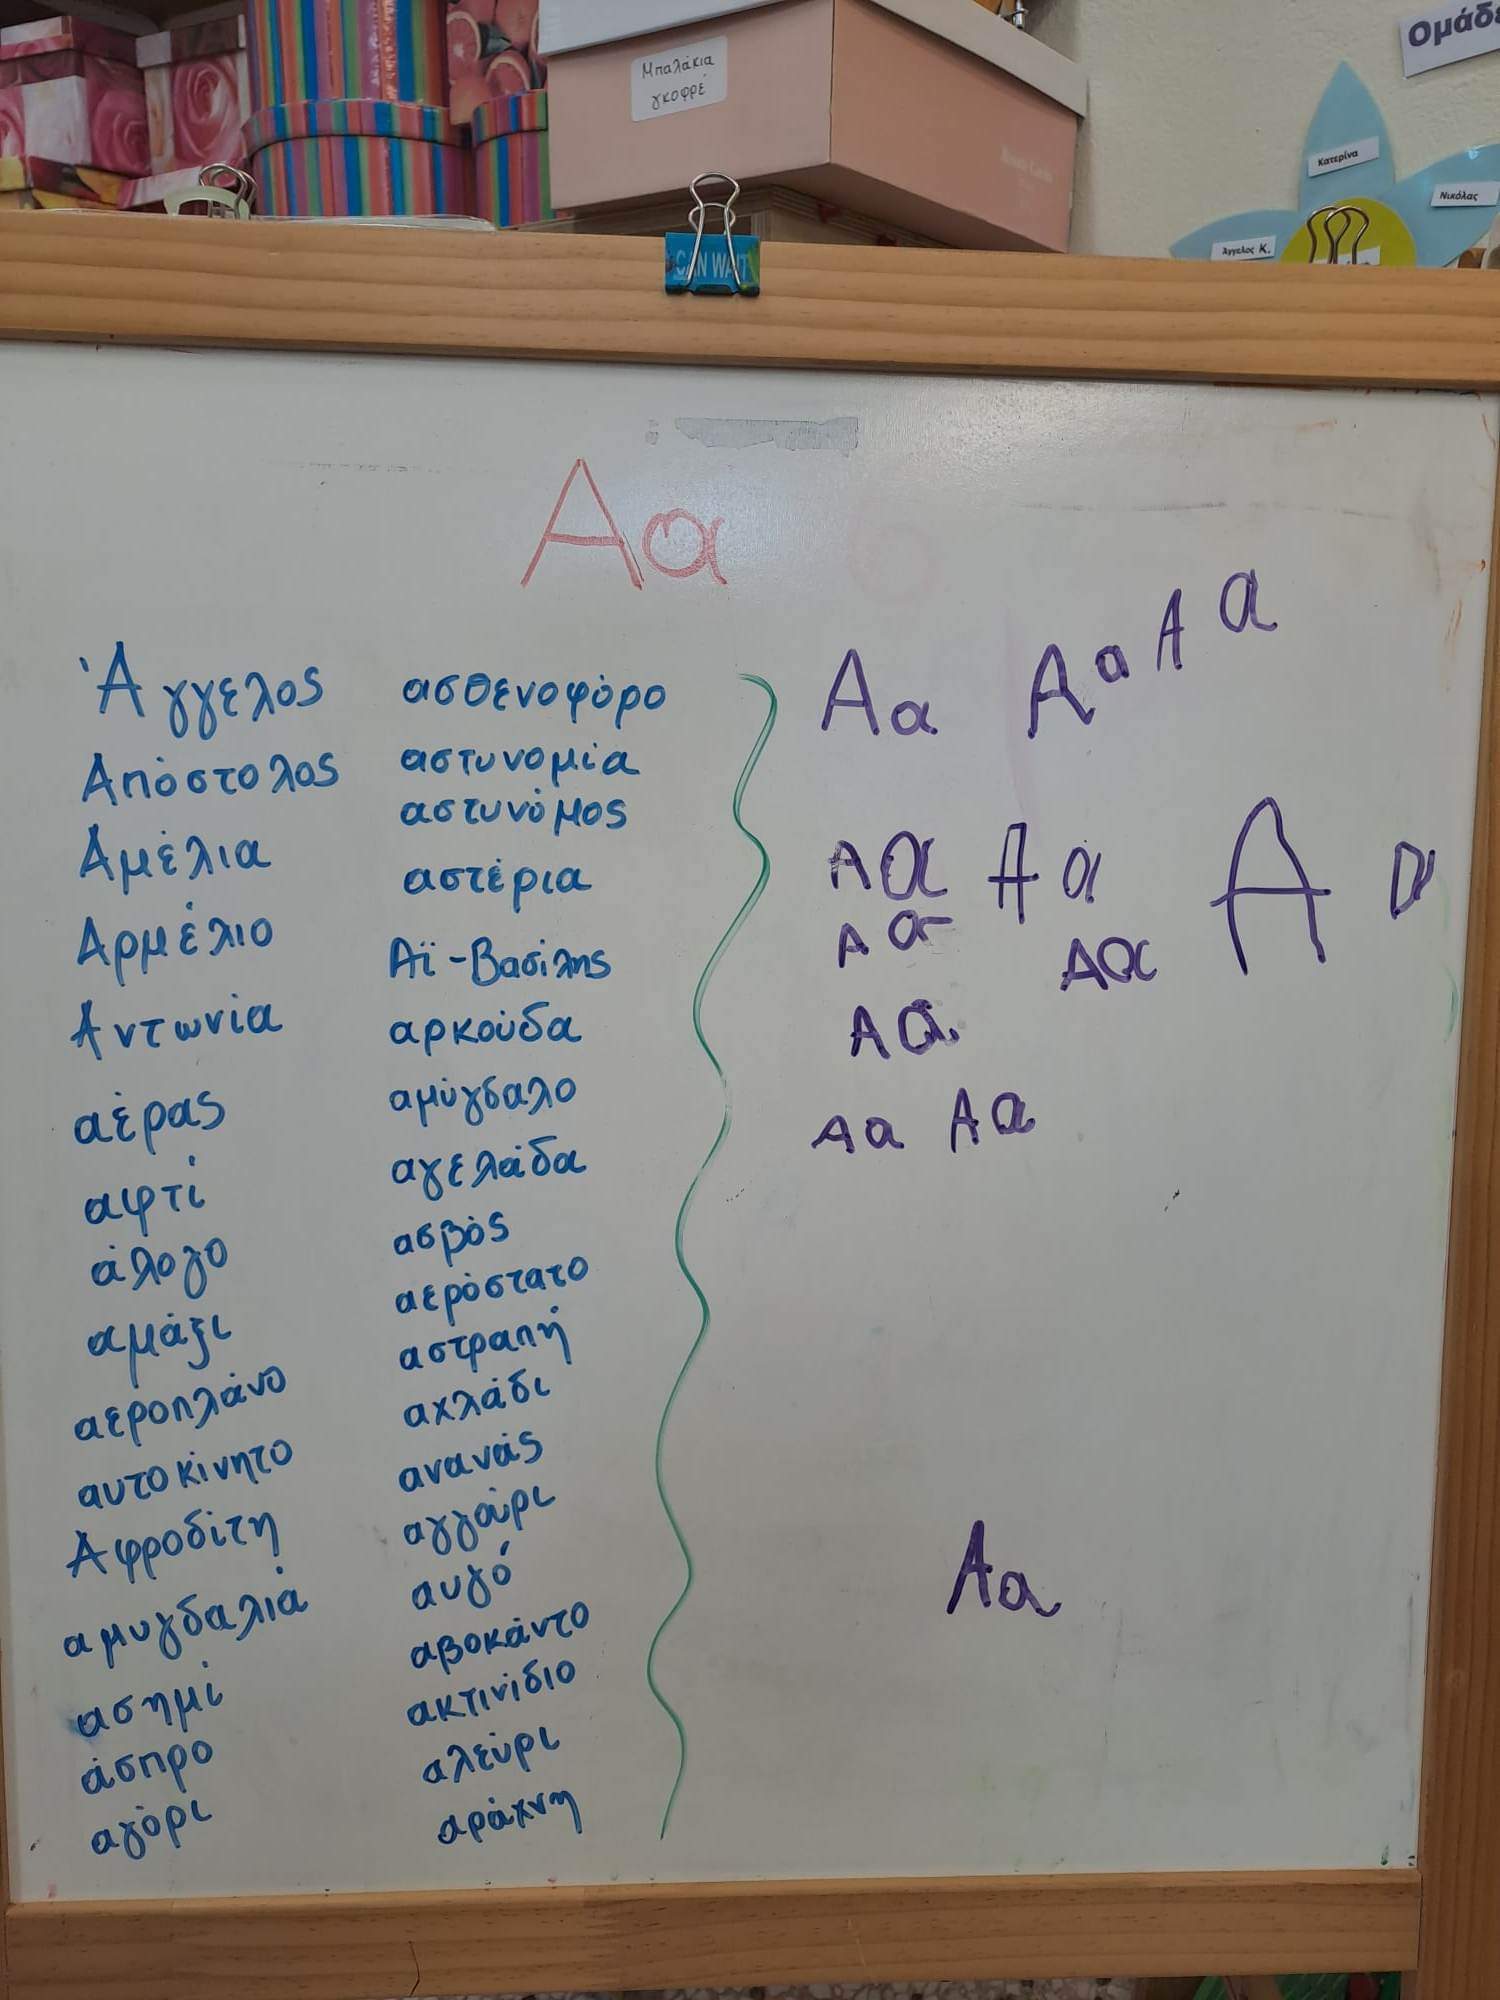 Μπαλάκια
γκοφρέ
Ομάδε
Κατερίνα
Νικόλας
Άγγελος Κ.
CAN WAIT
Αα
Άγγελος
Απόστολος
Αμέλια
Αρμέλιο
Αντωνία
αέρας
αφτί
άλογο
αμάξι
αεροπλάνο
αυτοκίνητο
Αφροδίτη
αμυγδαλιά
ασημί
άσπρο
αγόρι
ασθενοφόρο
αστυνομία
αστυνόμος
αστέρια
Αϊ-Βασίλης
αρκούδα
αμύγδαλο
αγελάδα
ασβός
αερόστατο
αστραπή
αχλάδι
ανανάς
αγγούρι
αυγό
αβοκάντο
ακτινίδιο
αλεύρι
αράχνη
Αα Αα Αα
Αα Αα Α α
Αα Αα
Αα
Αα Αα
Αα